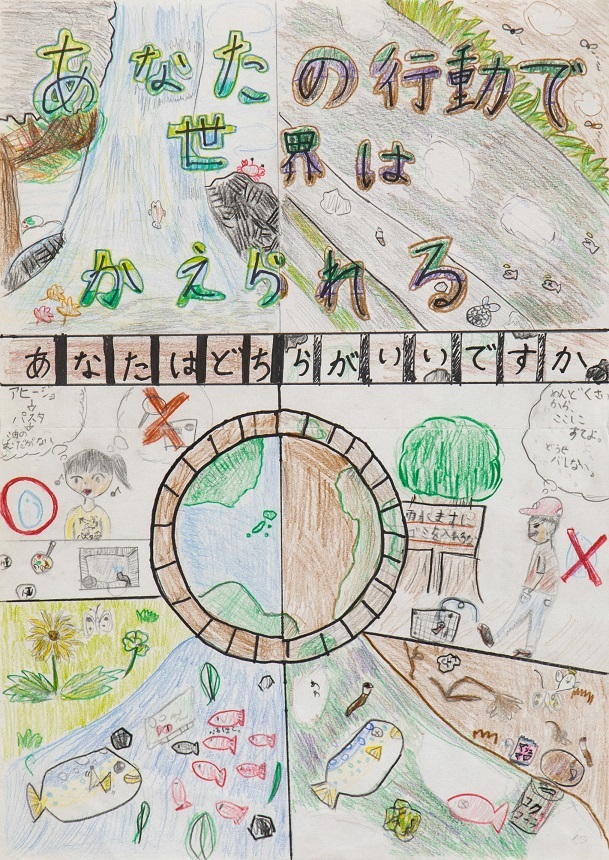 あなたの行動で
世界は
かえられる
あなたはどちらがいいですか。
アヒージョ
パスタ
油の
むだがない
めんどくさい
から、
ここに
すてよ。
どうせ
バレない。
雨水ますに
コク
コーラ